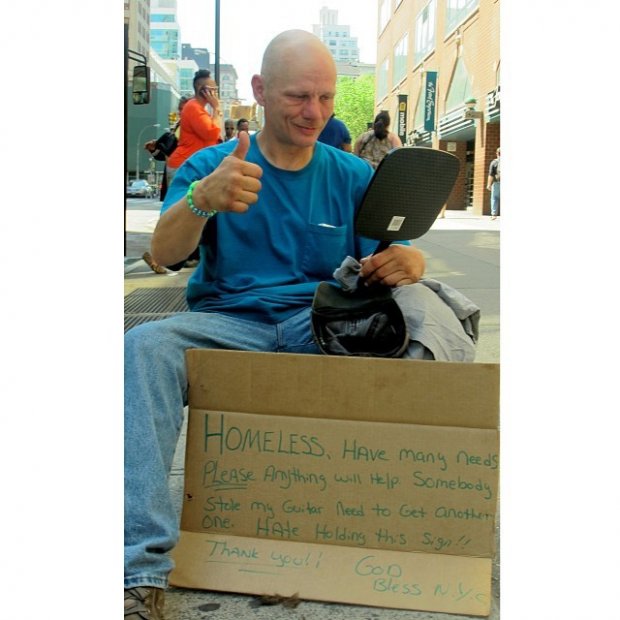 HOMELESS. HAVE many needs
PLEASE Anything will Help. Somebody
Stole my Guitar Need to Get another
one. HAte Holding this Sign!!
THANK you!!
GoD
Bless N.Y.C
mobile